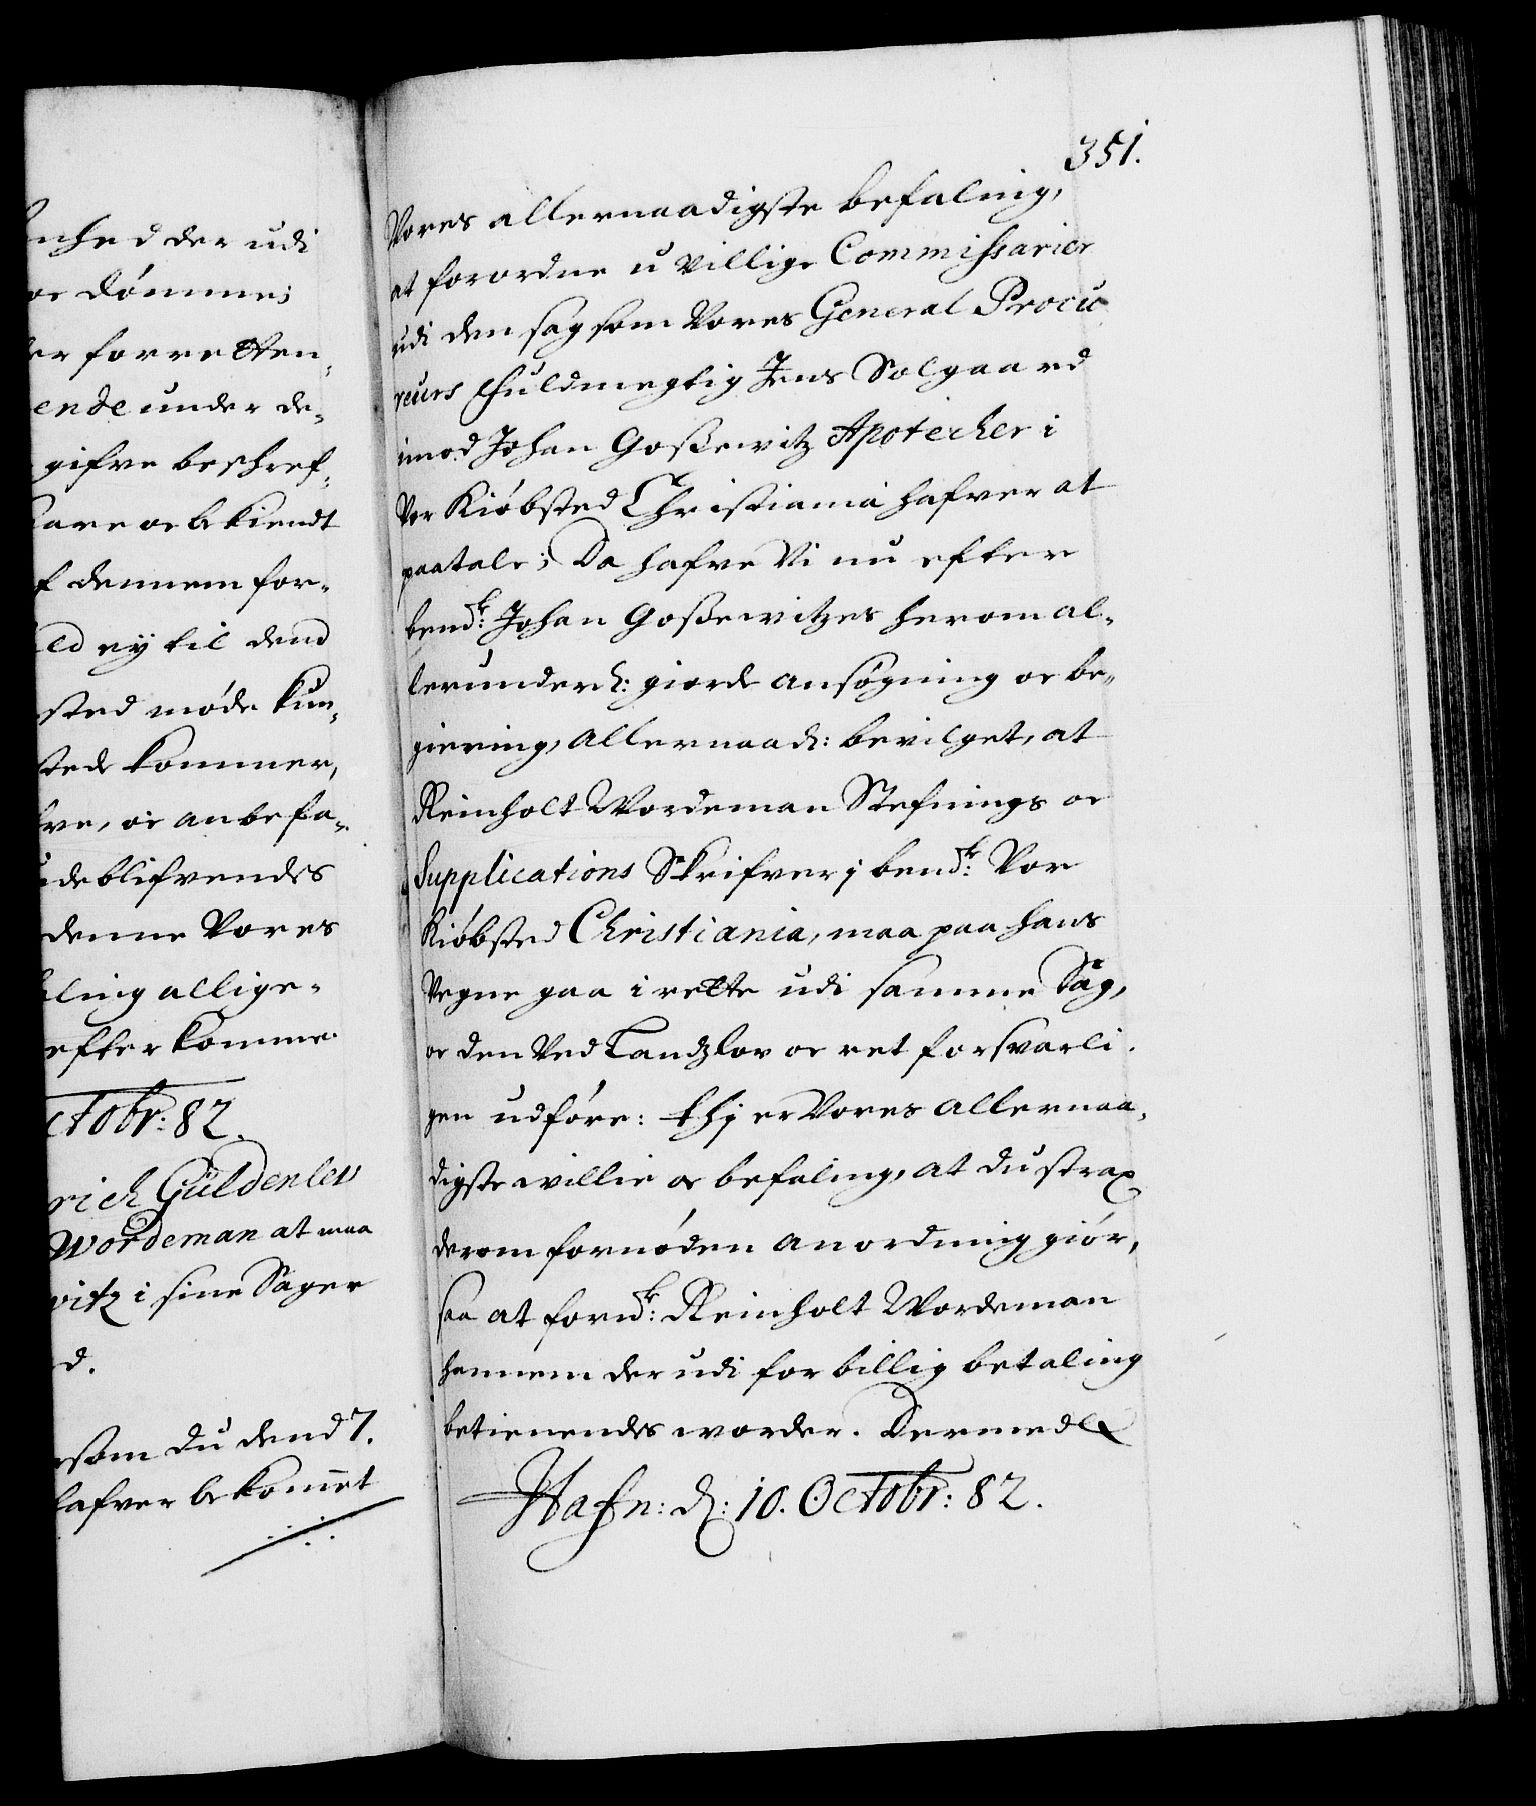 nhed der udi
oc dømme;
er forretten,
ende under de,
gifve beschref,
are oc bekiendt
f dennem for,
ld ey til dend
sted møde kun,
stede kommer,
fve, oc anbefa,
udeblifvendes
denne Vores
ling allige,
efterkomme
ctobr: 82.
rich Güldenlev
Wordeman at maa
vitz i sine Sager
d.
som du dend 7.
hafver bekomet
351.
Vores allernaadigste befaling,
at forordne u villige Commissarier
udi den sag som Vores General Procu
reurs fuldmegtig Jens Solgaard
imod Johan Gossewitz Apotecher i
Vor Kiøbsted Christiania hafver at
paatale; Da hafve Vi nu efter
bend: Johan Gossewitzes herom al,
lerunderd: giorde ansøgning oc be,
giering, allernaad: bevilget, at
Reinholt Wordeman Stefnings oc
Supplications Skrifver j bend: Vor
Kiøbsted Christiania, maa paa hans
Vegne gaa i rette udi samme Sag,
oc den Ved Landzlov oc ret forsvarli
gen udføre: thj er Vores allernaa,
digste willie oc befaling, at du strax
derom fornøden anordning giør,
saa at fornd: Reinholt Wordeman
hannem der udi for billig betaling
betienendes worder. Dermed &
Hafn: d: 10. Octobr: 82.